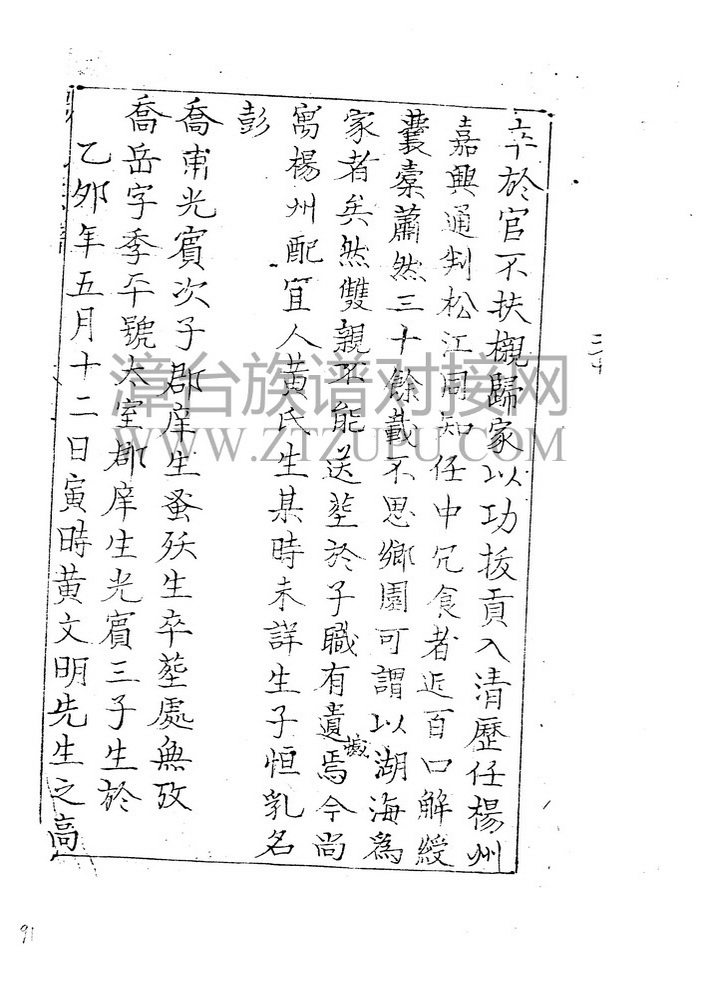 卒於官不扶櫬歸家以功拔貢入清歷任楊州
嘉興通判松江同知任中冗食者近百口解綬
囊橐蕭然三十餘載不思鄉園可謂以湖海為
家者矣然雙親不能送塟於子職有遺憾焉今尚
寓楊州配宜人黃氏生某時未詳生子恒乳名
彭
喬甫光賓次子郡庠生蚤殀生卒塟處無攷
喬岳字季平號大室郡庠生光賓三子生於
乙卯年五月十二日寅時黃文明先生之高
三十
漳台族谱对接网
WWW.ZTZUPU.COM
91